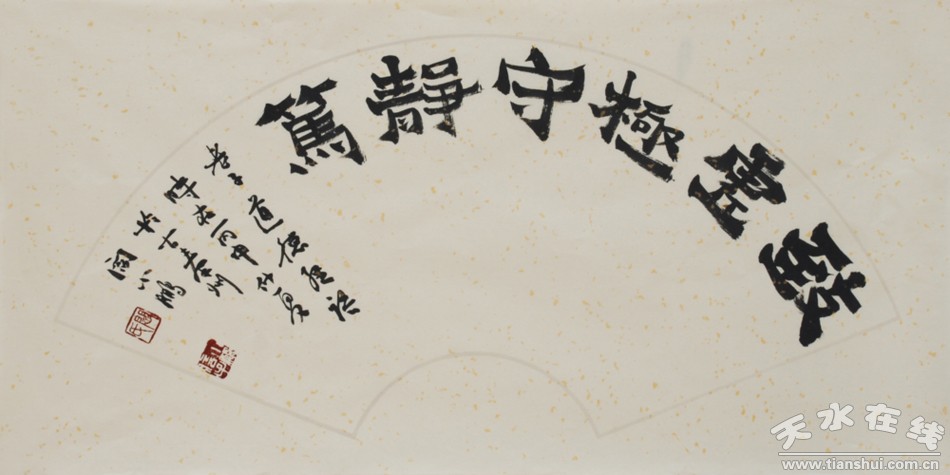 致虚極守靜篤
老子道德經語
時在丙申仲夏
於古秦州
閻小鵬
天水在线
www.tianshui.com.cn